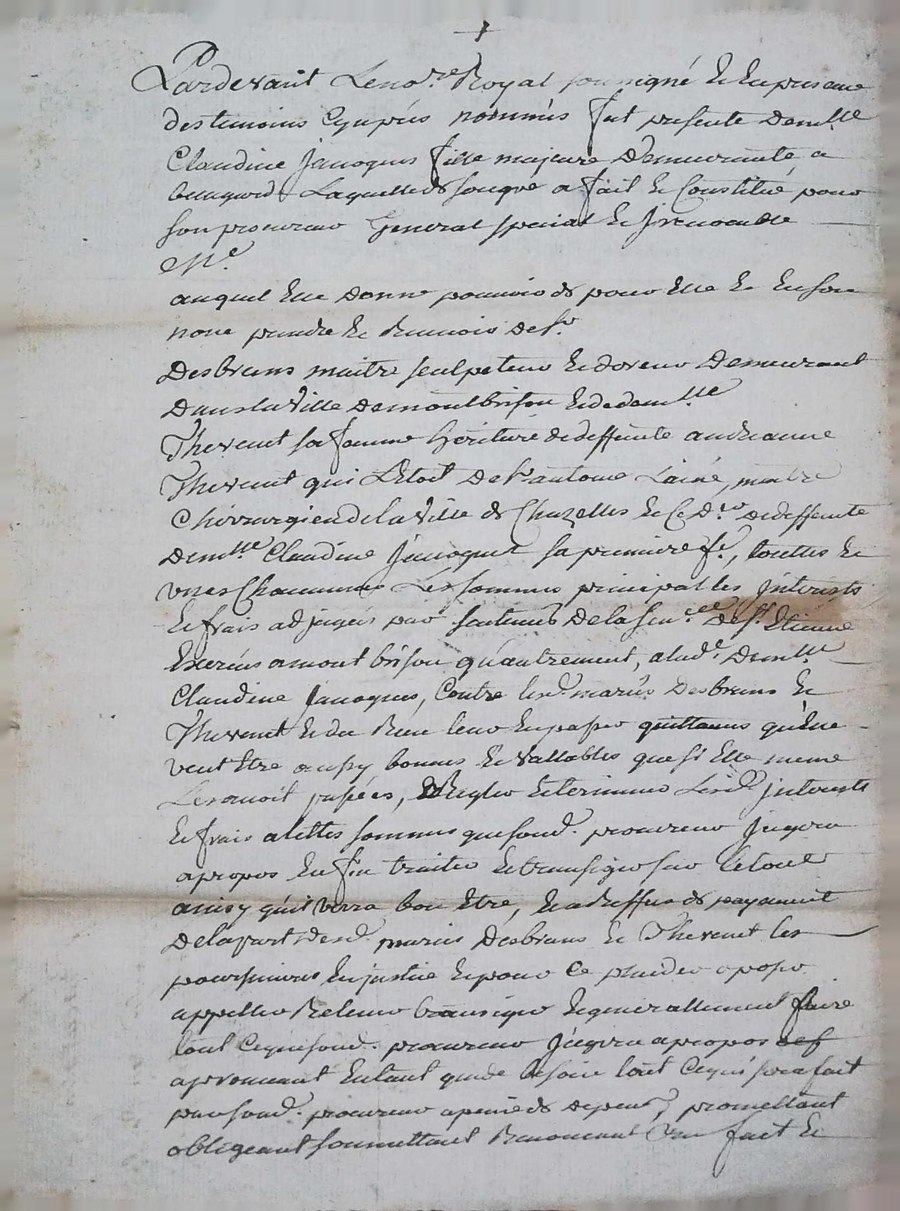 Pardevant Le no.re Royal soussigné Et En presence
des temoins Cy aprés nommés fut presente Dem.lle
Claudine Jacoques fille majeure Demeurante a
Laquelle de son gré a fait Et Constitué pour
son procureur General special Et Jrrevocable
M.e
auquel Elle donne pouvoir de pour Elle Et En son
nom prendre Et Recevoir de S.r
Desbruns maitre sculpteur Et doreur Demeurant
Dans la Ville de montbrison Et de dem.lle
Thevenet sa femme heritiere de deffunte
Thevenet qui L'etoit de S.r antoine Lainé, maitre
Chirurgien de la Ville de Chazelles Et de deffunte
Dem.lle Claudine Jacoques sa premiere fe, touttes Et
unes Chacunnes Les sommes principalles Jnterests
Et frais adjugés par sentence de la Sen.cée De S.t Etienne
a montbrison qu'autrement, a lad.e Dem.lle
Claudine Jacoques, Contre lesd. mariés Desbruns Et
Thevenet Et du Reçu leur En passer quittances qu'Elle
veut Etre aussy bonnes Et Vallables que si Elle meme
Les avoit passées, Regler Et terminer Lesd. jnterests
Et frais a telles sommes que sond. procureur Jugera
a propos En fin traiter Et transiger sur Le tout
ainsy qu'il Verra bon Etre, Et a deffaut de payement
De la part desd. mariés Desbruns Et Thevenet les
poursuivre En justice Et pour Ce plaider oposer
appeller Relever transiger Et generallement faire
tout Ce que sond. procureur Jugera a propos
aprouvant En tant que de besoin tout Ce qui sera fait
par sond. procureur a peine de depens, promettant
obligeant soumettant Renonceant fait Et